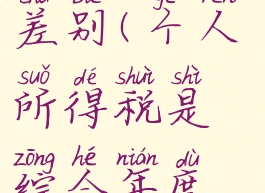 差别(个人
suǒ dé shuì shì
所得税是
zōng hé nián dù
综合年度